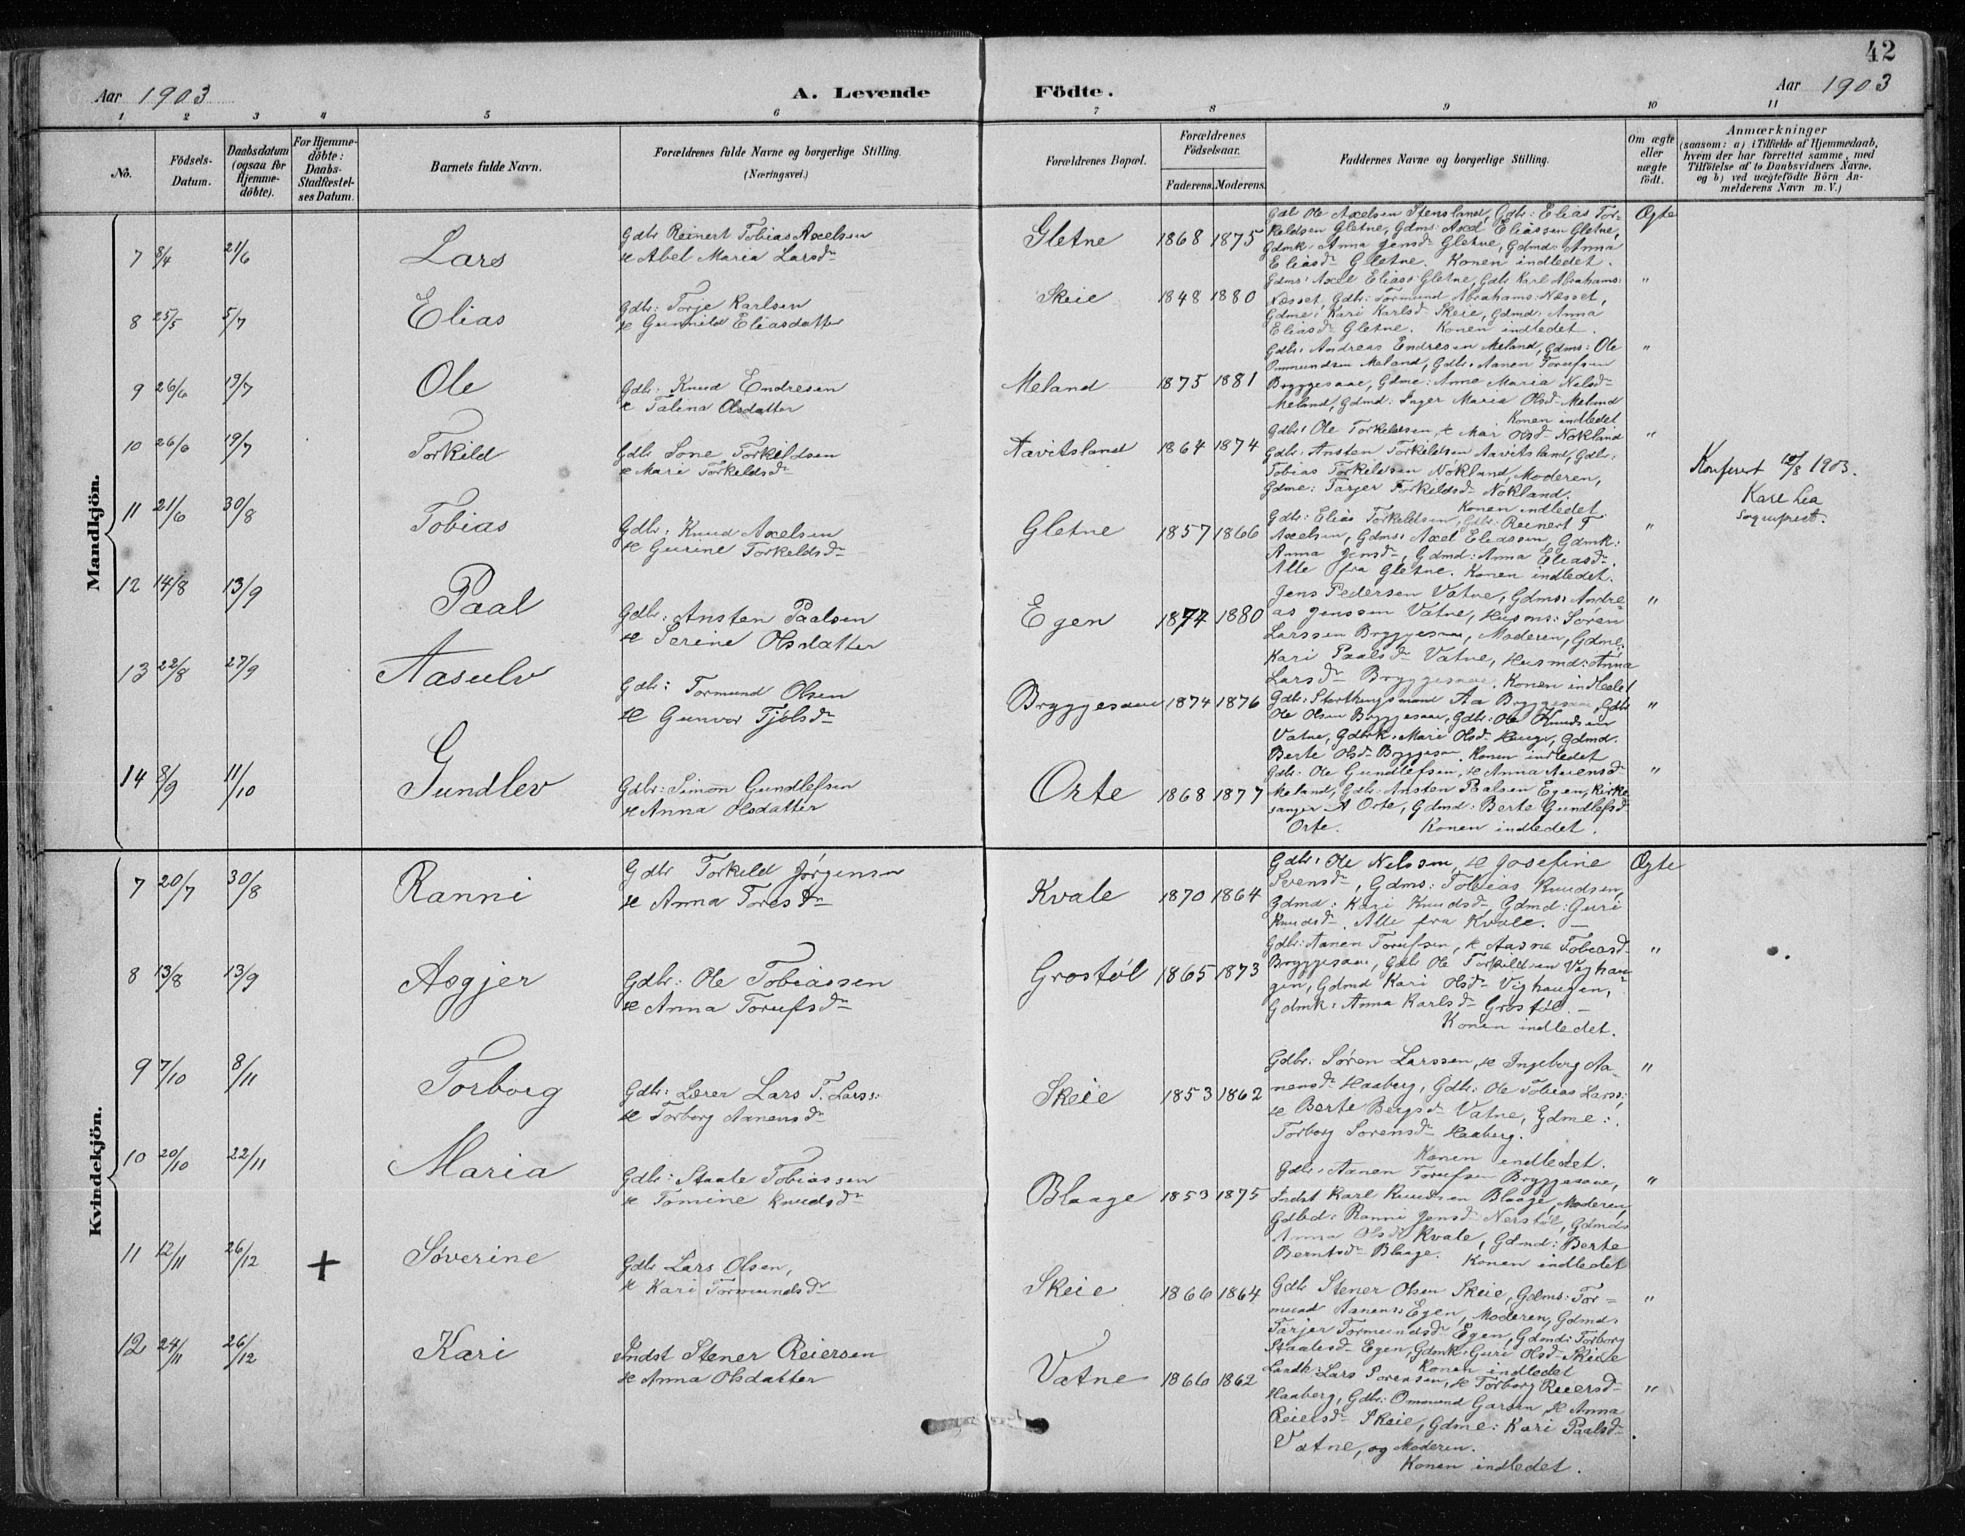 42
Aar 1903
A. Levende
Födte.
Aar 1903
1 2 3 4 5 6 7 8 9 10 11
No.
Födsels-
Datum.
Daabsdatum
(ogsaa for
Hjemme-
döbte).
For Hjemme-
döbte:
Daabs-
Stadfæstel-
ses Datum.
Barnets fulde Navn.
Forældrenes fulde Navne og borgerlige Stilling.
(Næringsvei.)
Forældrenes Bopæl.
Forældrenes
Födselsaar.
Faderens. Moderens.
Faddernes Navne og borgerlige Stilling.
Om ægte
eller
uægte
født.
Anmærkninger
(saasom: a) i Tilfælde af Hjemmedaab,
hvem der har forrettet samme, med
Tilföielse af to Daabsvidners Navne,
og b) ved uægtefödte Börn An-
melderens Navn m. V.)
Mandkjön.
7 8/4 21/6 Lars
Gdbr Reinert Tobias Axelsen
& Abel Maria Larsdr
Gletne 1868 1875
Gdbr Ole Axelsen Stensland, Gdbr: Elias Tor-
keldsen Gletne, Gdms: Axel Eliassen Gletne,
Gdmk: Anna Jensdr Gletne, Gdmd: Anna
Eliasdr Gletne. Konen indledet.
Ægte
8 25/5 5/7 Elias
Gdbr: Torje Karlsen
& Gunnild Eliasdatter
Skeie 1848 1880
Gdms: Axel Elias: Gletne, Gdbr Karl Abrahams:
Næsset, Gdbr: Tormund Abrahams: Næsset,
Gdme: Kari Karlsd. Skeie, Gdmd: Anna
Eliasdr Gletne. Konen indledet.
"
9 26/6 19/7 Ole
Gdbr: Knud Endresen
& Talina Olsdatter
Meland 1875 1881
Gdbr: Andreas Endresen Meland, Gdms: Ole
Ommundsen Meland, Gdbr: Aanen Torufsen
Bryggesaae, Gdme: Anne Maria Nelsdr
Meland, Gdmd: Inger Maria Olsd. Meland
Konen indledet
"
10 26/6 19/7 Torkild
Gdbr Lone Torkildsen
& Mari Torkeldsdr
Aavitsland 1864 1874
Gdbr: Ole Torkeldsen, & Mari Olsd. Nökland
Gdbr: Ansten Torkildsen Aavitsland, Gdbr:
Tobias Torkildsen Nökland, Moderen,
Gdme: Tarjer Torkildsdr Nökland.
Konen indledet.
"
Konferert 10/8 1903.
Kare Lea
Sogneprest.
11 21/6 30/8 Tobias
Gdbr: Knud Axelsen
& Gurine Torkeldsdr
Gletne 1857 1866
Gdbr: Elias Torkeldsen, Gdbr: Reinert T.
Axelsen, Gdms: Axel Eliassen, Gdmk:
Anna Jensdr, Gdmd: Anna Eliasdr.
Alle fra Gletne. Konen indledet.
"
12 14/8 13/9 Paal
Gdbr: Ansten Paalsen
& Serine Olsdatter
Egen 1877 1880
Jens Pedersen Vatne, Gdms: Andre-
as Jenssen Vatne, Husms: Søren
Larssen Bryggesaae, Moderen, Gdme:
Kari Paalsdr Vatne, Husmd: Anna
Larsdr Bryggesaae. Konen indledet
"
13 22/8 27/9 Aasulv
Gdbr: Tormund Olsen
& Gunvor Tjölsdr
Bryggesaae 1874 1876
Gdbr: Storthingsmand Aa Bryggesaae, Gdbr
Ole Olsen Bryggesaae, Gdbr: Ole Knudsen
Vatne, Gdbrk: Mari Olsd. Hauge, Gdmd.
Berte Olsd. Bryggesa. Konen indledet
"
14 8/9 11/10 Gundlev
Gdbr: Simon Gundlefsen
& Anna Olsdatter
Orte 1868 1877
Gdbr: Ole Gundlefsen, & Anna Anensd.
Meland, Gdbr: Ansten Paalsen Egen, Kirke-
sanger A Orte, Gdmd: Berte Gundlefsd.
Orte. Konen indledet.
"
Kvindekjön.
7 20/7 30/8 Ranni
Gdbr Torkild Jörgensen
& Anna Toresdr
Kvale 1870 1864
Gdbr: Ole Nelssen, & Josefine
Svensdr, Gdms: Tobias Knudsen,
Gdmd: Kari Knudsdr Gdmd: Guri
Knudsdr. Alle fra Kvale.
Ægte
8 13/8 13/9 Asgjer
Gdbr: Ole Tobiassen
& Anna Torufsdr
Grostöl 1865 1873
Gdbr: Aanen Torufsen, & Aasne Tobiasd.
Bryggesaae, Gdbr Ole Torkildsen Vighau-
gen, Gdmd Kari Olsdr Vighaugen,
Gdmk: Anna Karlsdr Grostöl.
Konen indledet.
"
9 7/10 8/11 Torborg
Gdbr: Lærer Lars T. Larss:
& Torborg Aanensdr
Skeie 1853 1862
Gdbr: Sören Larssen, & Ingeborg Aa-
nensdr Haaberg, Gdbr: Ole Tobias Larss:
& Berte Bergsdr Vatne, Gdme:
Torborg Sorensdr Haaberg.
Konen indledet.
"
10 20/10 22/11 Maria
Gdbr: Staale Tobiassen
& Tomine Knudsdr
Blaage 1853 1875
Gdbr: Aanen Torufsen Bryggesaae,
Indst Karl Knudsen Blaage, Moderen,
Gdbd: Ranni Jensdr Nerstöl, Gdmd:
Anna Olsdr Kvale, Gdmd: Berte
Berntsdr Blaage. Konen indledet
"
11 12/11 26/12 + Söverine
Gdbr Lars Olsen,
& Kari Tormundsdr
Skeie 1866 1864
Gdbr Stener Olsen Skeie, Gdms: Tor-
mund Aanens: Egen, Moderen, Gdmd:
Tarjer Tormundsdr Egen, Gdmd: Torborg
Staalesd. Egen, Gdmk: Guri Olsd. Skeie
Konen indledet
"
12 24/11 26/12 Kari
Indst Stener Reiersen
& Anna Olsdatter
Vatne 1866 1862
Landh: Lars Sorensen, & Torborg Reiersd.
Haaberg, Gdbr: Ommund Garsen & Anna
Reiersdr Skeie, Gdme: Kari Paalsdr
Vatne, og Moderen.
Konen indledet.
"